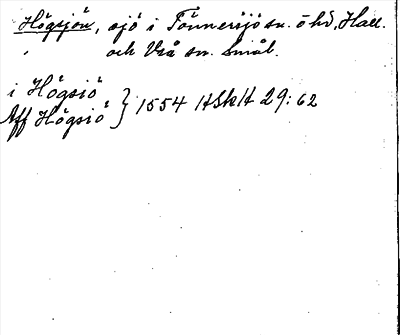 Högsjön, sjö i Tönnersjö sn. ö hd, Hall.
och Vrå sn. Smål.
i Högsiö
Aff Högsiö } 1554 HSkH 29:62